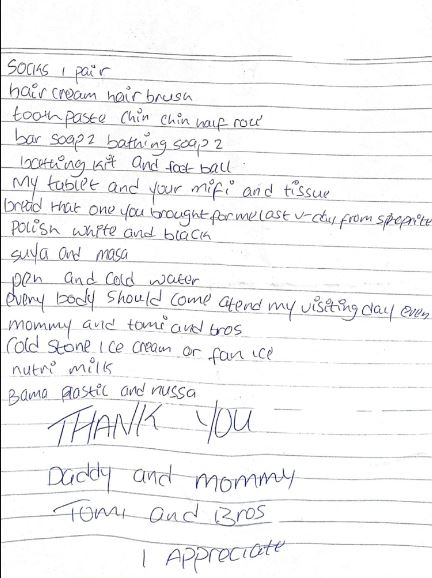 SOCKS 1 pair
hair cream hair brush
tooth paste chin chin half row
bar soap 2 bathing soap 2
bathing kit and foot ball
My tablet and your mifi and tissue
bread that one you brought for me last v-day from
Polish white and black
suya and masa
pen and cold water
every body should come atend my visiting day even
mommy and tomi and bros
Cold stone ice cream or fan ice
nutri milk
Bama plastic and nussa
THANK YOU
Daddy and mommy
Tomi and Bros
I Appreciate